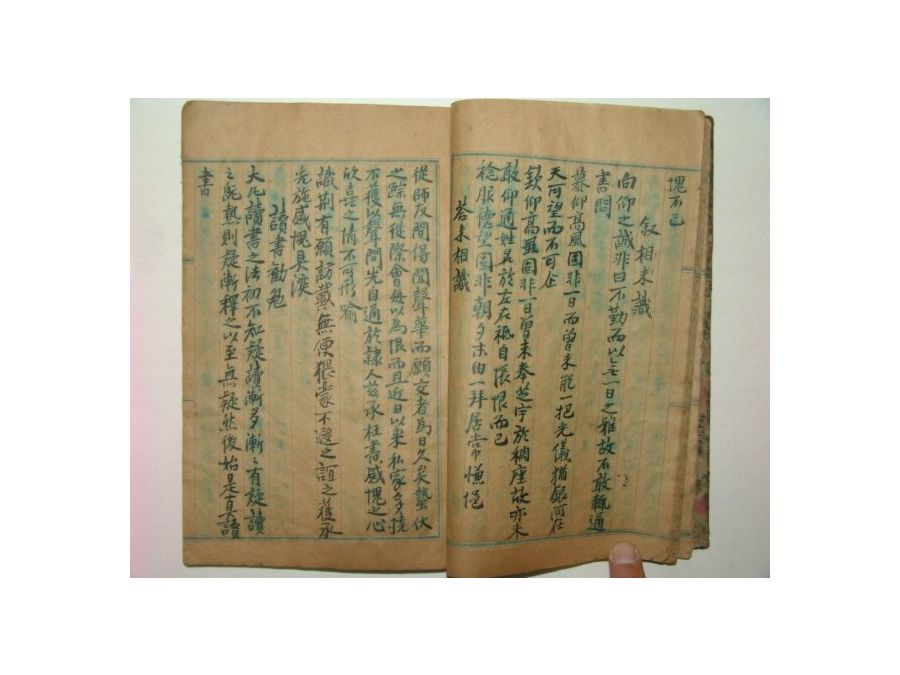 愧不已
叙相未識
向仰之誠非曰不勤而以無一日之雅故不敢輒通
書問
慕仰高風固非一日而曾未能一把光儀猶銀河在
天可望而不可企
欽仰高風固非一日曾未奉芝宇於稠座故亦未
敢仰通姓名於左右祗自悵恨而已
稔服德望固非朝夕末由一拜居常慊悒
答未相識
從師友間得聞聲華而願交者為日久矣蟄伏
之踪無從際會每以為恨而且近日以來私家多撓
不獲以聲聞先自通於隸人玆承枉書感愧之心
欣喜之情不可形喻
識荆有願訪戴無便猥蒙不遐之誼之獲承
先施感愧具深
讀書勸勉
大凡讀書之法初不知疑讀漸多漸々有疑讀
之既熟則疑漸釋之以至無疑然後始是真讀
書